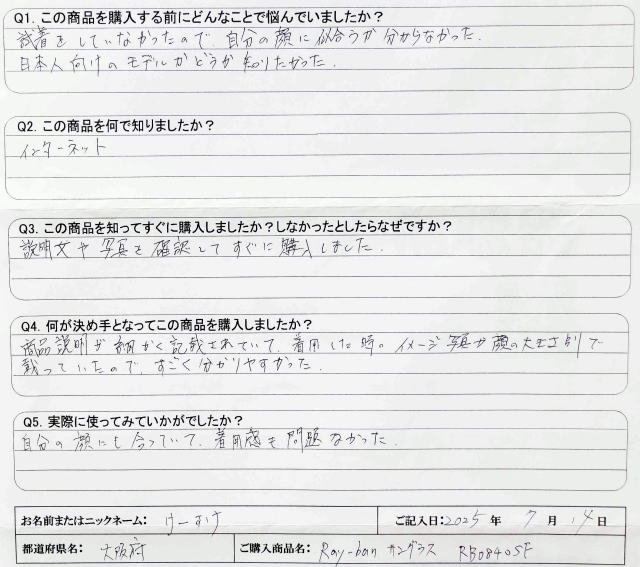 Q1. この商品を購入する前にどんなことで悩んでいましたか？
試着をしていなかったので、自分の顔に似合うか分からなかった.
日本人向けのモデルかどうか知りたかった.
Q2. この商品を何で知りましたか？
インターネット
Q3. この商品を知ってすぐに購入しましたか？しなかったとしたらなぜですか？
説明文や写真を確認してすぐに購入しました.
Q4. 何が決め手となってこの商品を購入しましたか？
商品説明が細かく記載されていて、着用した時のイメージ写真が顔の大きさ別で
載っていたので、すごく分かりやすかった.
Q5. 実際に使ってみていかがでしたか？
自分の顔にも合っていて、着用感も問題なかった.
お名前またはニックネーム： けーすけ ご記入日：2025 年 7 月 14 日
都道府県名： 大阪府 ご購入商品名： Ray-ban サングラス RB0840SF